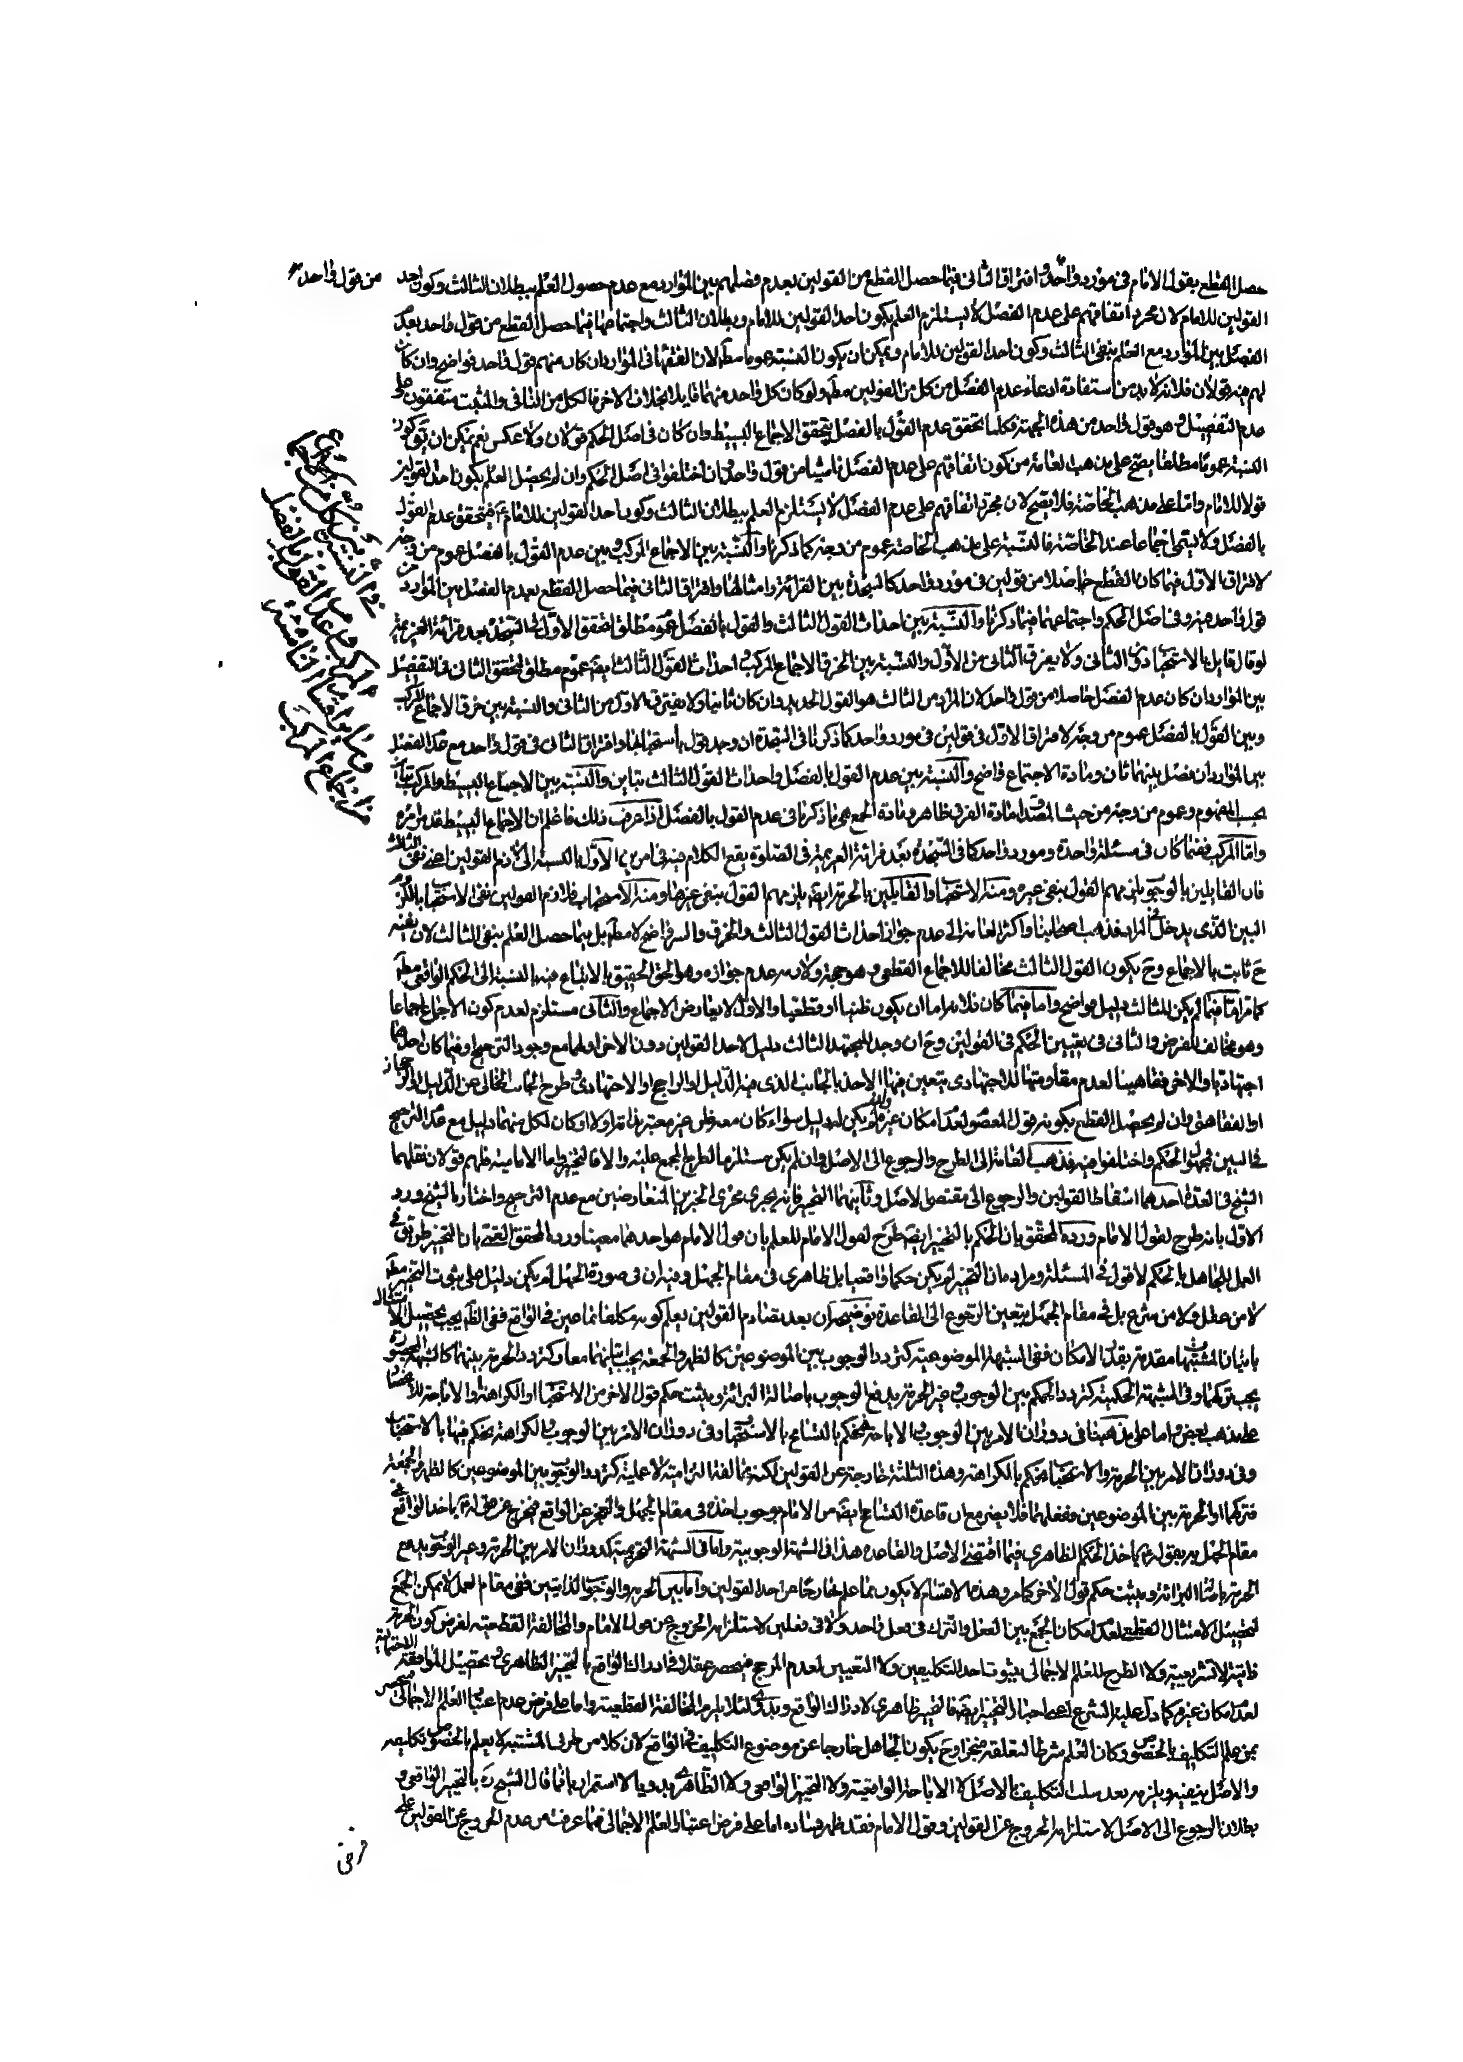 حصل القطع بقول الامام فى مورد واحد وافتراق الثانى فيما حصل القطع من القولين بعدم فصلهم بين الموارد مع عدم حصول العلم ببطلان الثالث وكون احد
من قول واحد
القولين للامام لان مجرد اتفاقهم على عدم الفصل لا يستلزم العلم بكون احد القولين للامام وبطلان الثالث واجتماعهما فيما حصل القطع من قول واحد بعدم
الفصل بين الموارد مع العلم بنفى الثالث وكون احد القولين للامام ويمكن ان يكون النسبة عموما مطلقا لان الفقهاء فى الموارد ان كان منهم قول واحد فواضح وان كان
لهم فيه قولان فلانه لا بد من استفادة ادعاء عدم الفصل من كل من القولين مطلقا ولو كان كل واحد منهما قايلا بخلاف الاخر فالكل من النافى والمثبت متفقون على
عدم التفصيل وهو قول واحد من هذه الجهة فكلما تحقق عدم القول بالفصل يتحقق الاجماع البسيط وان كان فى اصل الحكم قولان ولا عكس نعم يمكن ان يكون
النسبة عموما مطلقا يصح على مذهب العامة من كون اتفاقهم على عدم الفصل ناشيا من قول واحد وان اختلفوا فى اصل الحكم وان لم يحصل العلم بكون احد القولين
قولا للامام واما على مذهب الخاصة فلا يصح لان مجرد اتفاقهم على عدم الفصل لا يستلزم العلم ببطلان الثالث وكون احد القولين للامام فيتحقق عدم القول
بالفصل ولا يسمى اجماعا عند الخاصة فالنسبة على مذهب الخاصة عموم من وجه كما ذكرنا والنسبة بين الاجماع المركب وبين عدم القول بالفصل عموم من وجه
لافتراق الاول فيما كان القطع حاصلا من قولين فى مورد واحد كالسجدة بين القرائة وامثالها وافتراق الثانى فيما حصل القطع بعدم الفصل بين الموارد من
قول واحد منه وفى اصل الحكم واجتماعهما فيما ذكرنا والنسبة بين احداث القول الثالث والقول بالفصل عموم مطلق لتحقق الاول فى السجدة بعد قرائة العزيمة
لو قال قايل بالاستحباب دون الثانى ولا يفرق الثانى من الاول والنسبة بين الخرق الاجماع المركب واحداث القول الثالث ايضا عموم مطلق لتحقق الثانى فى التفصيل
بين الموارد ان كان عدم الفصل حاصلا من قول واحد لان المراد من الثالث هو القول الجديد وان كان ثانيا ولا يفترق الاول من الثانى والنسبة بين خرق الاجماع المركب
وبين القول بالفصل عموم من وجه لافتراق الاول فى قولين فى مورد واحد كما ذكرنا فى السجدة ان وجد قول باستحبابها وافتراق الثانى فى قول واحد مع عدم الفصل
بين الموارد ان فصل بينهما ثان ومادة الاجتماع واضح والنسبة بين عدم القول بالفصل واحداث القول الثالث تباين والنسبة بين الاجماع البسيط والمركب تباين
بحسب المفهوم وعموم من وجه من حيث المصداق مادة الفرق ظاهر ومادة الجمع هى ما ذكرنا فى عدم القول بالفصل اذا عرفت ذلك فاعلم ان الاجماع البسيط قد مر امره
واما المركب ففيما كان فى مسئلة واحدة ومورد واحد كما فى السجدة بعد قرائة العزيمة فى الصلوة يقع الكلام فيه فى امرين الاول بالنسبة الى لازم القولين اعنى نفى الثالث
فان القايلين بالوجوب يلزمهم القول بنفى غيره ومنه الاستحباب والقايلين بالحرمة ايضا يلزمهم القول بنفى غيرها ومنه الاستحباب فلازم القولين نفى الاستحباب باللزوم
البين الذى يدخل فى المراد فذهب اصحابنا واكثر العامة الى عدم جواز احداث القول الثالث والخرق والسر واضح لا مطلقا بل فيما حصل العلم بنفى الثالث لان نفيه
ح ثابت بالاجماع وح يكون القول الثالث مخالفا للاجماع القطعى وهو حجة ولازمه عدم جوازه وهو الحق الحقيق بالاتباع فيه بالنسبة الى الحكم الواقعى مطلقا
كما مر اما فيما لم يكن للثالث دليل فواضح واما فيما كان فلانه اما ان يكون ظنيا او قطعيا والاول لا يعارض الاجماع والثانى مستلزم لعدم كون الاجماع اجماعا
وهو مخالف للفرض والثانى فى تعيين الحكم فى القولين وح ان وجد للمجتهد الثالث دليل لاحد القولين دون الاخر او لهما مع وجود الترجيح او فيما كان احدهما
اجتهاديا والاخر فقاهيا لعدم مقاومتها للاجتهادى يتعين فيها الاخذ بالجانب الذى فيه الدليل او الراجح او الاجتهادى وطرح الجانب الخالى عن الدليل او المرجوح
او الفقاهتى وان لم يحصل القطع بكونه قول المعصوم لعدم امكان غيره ولو لم يكن له دليل سواء كان معه ظن غير معتبر بذاته ام لا او كان لكل منهما دليل مع عدم الترجيح
فى البين فيجهل الحكم واختلفوا فيه فذهب العامة الى الطرح والرجوع الى الاصل وان لم يكن مستلزما لطرح المجمع عليه والا فالتخيير واما الامامية فلهم قولان نقلهما
الشيخ فى العدة احدهما اسقاط القولين والرجوع الى مقتضى الاصل وثانيهما التخيير فانه يجرى مجرى الخبرين المتعارضين مع عدم الترجيح واختاره الشيخ ورد
الاول بانه طرح لقول الامام ورده المحقق بان الحكم بالتخيير ايضا طرح لقول الامام للعلم بان قول الامام هو احدهما معينا ورد المحقق القمى بان التخيير طريق فى
العمل للجاهل بالحكم لا قول فى المسئلة ومراده ان التخيير لم يكن حكما واقعيا بل ظاهرى فى مقام الجهل وفيه ان فى صورة الجهل لم يكن دليل على ثبوت التخيير مطلقا
لا من عقل ولا من شرع بل فى مقام الجهل يتعين الرجوع الى القاعدة توضيحه ان بعد تصادم القولين يعلم كونه مكلفا باحدهما فى الواقع ففى الظاهر يجب تحصيل الامتثال
باتيان المشتبهات مقدمة بقدر الامكان ففى الشبهة الموضوعية كتردد الوجوب بين الموضوعين كالظهر والجمعة يجب اتيانهما معا وكتردد الحرمة بينهما كالشبهة المحصورة
يجب تركهما وفى الشبهة الحكمية كتردد الحكم بين الوجوب وغير الحرمة يدفع الوجوب باصالة البرائة ويثبت حكم قول الاخر من الاستحباب او الكراهة او الاباحة
على مذهب بعض واما على مذهبنا فى دوران الامر بين الوجوب والاباحة فيحكم بالتسامح بالاستحباب وفى دوران الامر بين الوجوب والكراهة يحكم فيها بالاستحباب
وفى دوران الامر بين الحرمة والاستحباب فيحكم بالكراهة وهذه الثلثة خارجة عن القولين لكنه مخالفة التزامية لا عملية كتردد الوجوب بين الموضوعين كالظهر والجمعة
فتركهما او الحرمة بين الموضوعين وفعلهما فلا يضر مع ان قاعدة التسامح ايضا من الامام بوجوب اخذه فى مقام الجهل والعجز عن الواقع فيخرج عن قوله باخذ الواقع فى
مقام الجهل بقوله باخذ الحكم الظاهرى فيما اقتضى الاصل والقاعدة هذا فى الشبهة الوجوبية واما فى الشبهة التحريمية كدوران الامر بين الحرمة وغير الوجوب يدفع
الحرمة باصالة البرائة ويثبت حكم قول الاخر كما مر وهذه الاقسام لا يكون مما علم خارجا عن احد القولين واما بين الحرمة والوجوب الذاتيين ففى مقام العمل لا يمكن الجمع
لتحصيل الامتثال القطعى لعدم امكان الجمع بين الفعل والترك فى فعل واحد ولا فى فعلين لاستلزامه الخروج عن قول الامام والمخالفة القطعية لفرض كون الحرمة
ذاتية لا تشريعية ولا الطرح للعلم الاجمالى بثبوت احد التكليفين ولا التعيين لعدم المرجح فينحصر عقلا فى ادراك الواقع بالتخيير الظاهرى وتحصيل الموافقة الاحتمالية
لعدم امكان غيره كما دل عليه الشرع اعنى اخبار التخيير ايضا فالتخيير ظاهرى لادراك الواقع وبدوى لئلا يلزم المخالفة القطعية واما على فرض عدم اعتبار العلم الاجمالى
بمن علم التكليف بالخصوص وكان العلم شرطا لتعلقه منجزا وح يكون الجاهل خارجا عن موضوع التكليف فى الواقع لان كلا من طرفى المشتبه لا يعلم بالخصوص تكليفه
والاصل ينفيه ويلزمه بعد سلب التكليف بالاصل لا الاباحة الواقعية ولا التخيير الواقعى ولا الظاهرى بدويا لا استمراريا فما قال الشيخ ره بالتخيير الواقعى و
بطلان الرجوع الى الاصل لاستلزامه الخروج عن القولين وقول الامام فقد ظهر فساده اما على فرض اعتبار العلم الاجمالى فما عرفت من عدم الخروج عن القولين على
فرض